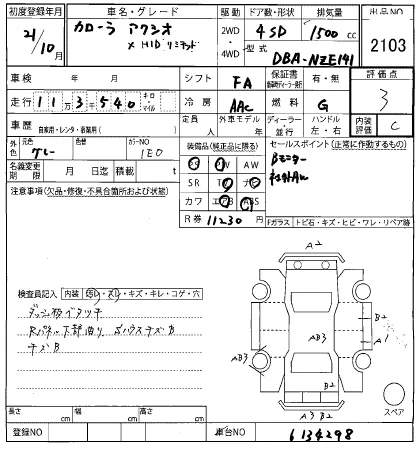 初度登録年月 車名・グレード 駆動 ドア数・形状 排気量 出品NO
21/10月 カローラ アクシオ 2WD 4SD 1500cc 2103
X HIDリミテッド 4WD 型式 DBA-NZE141
車検 年 月 シフト FA 保証書 有・無 評価点
走行 11万3千540 キロ・マイル 冷房 AAC 燃料 G 3
車歴 自家用・レンタ・事業用( ) 定員 人 外車モデル 年 ディーラー 並行 ハンドル 左・右 内装評価 C
外色 元色 グレー 色替 カラーNO 1E0 装備品(純正品に限る) セールスポイント(正常に作動するもの)
名義変更期限 月 日迄 積載 t PS PW AW Bモニター
注意事項(欠品・修復・不具合箇所および状態) SR TV ナビ 社外AW
カワ エアB ABS
R券 11230円 Fガラス トビ石・キズ・ヒビ・ワレ・リペア跡
A2
検査員記入 内装 ヨゴレ・スレ・キズ・キレ・コゲ・穴
ダッシュ板ベタツキ B2
Rパネル下部曲り SハウスキズB AB3 A1
キズB AB3 B2
A3 B2
スペア
長さ cm 幅 cm 高さ cm
登録NO 車台NO 6134298